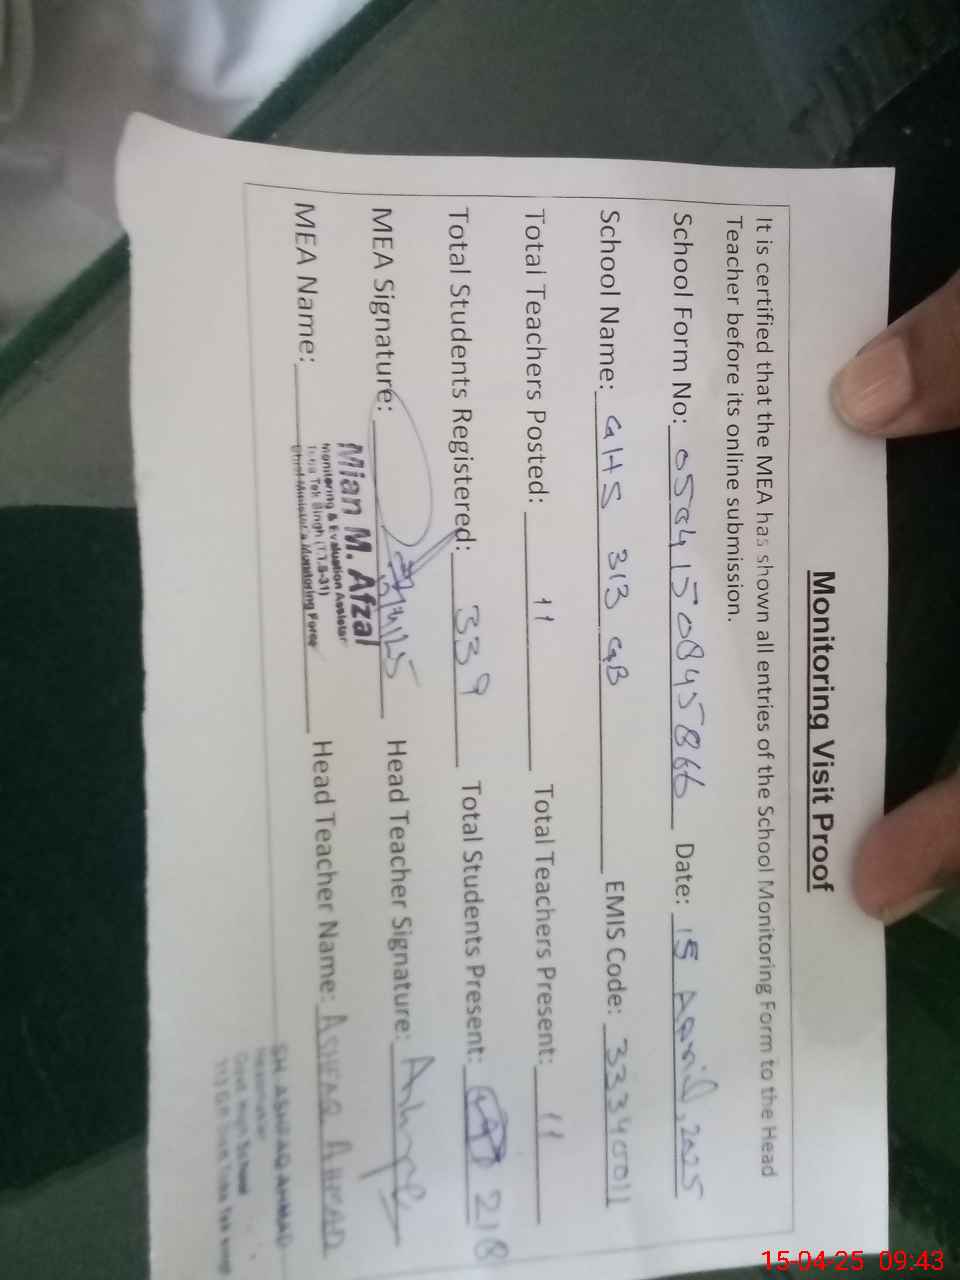 Monitoring Visit Proof
It is certified that the MEA has shown all entries of the School Monitoring Form to the Head
Teacher before its online submission.
School Form No: 0504150845866 Date: 15 April, 2025
School Name: GHS 313 GB EMIS Code: 33340011
Total Teachers Posted: 11 Total Teachers Present: 11
Total Students Registered: 339 Total Students Present: 218
MEA Signature: Head Teacher Signature:
Mian M. Afzal
Monitoring & Evaluation Assistant
Toba Tek Singh (T.T.S-31)
Chief Minister's Monitoring Force
MEA Name: Head Teacher Name: ASHFAQ AHMAD
CH. ASHFAQ AHMAD
Headmaster
Govt. High School
313 G.B Toba Tek Singh
15-04-25 09:43